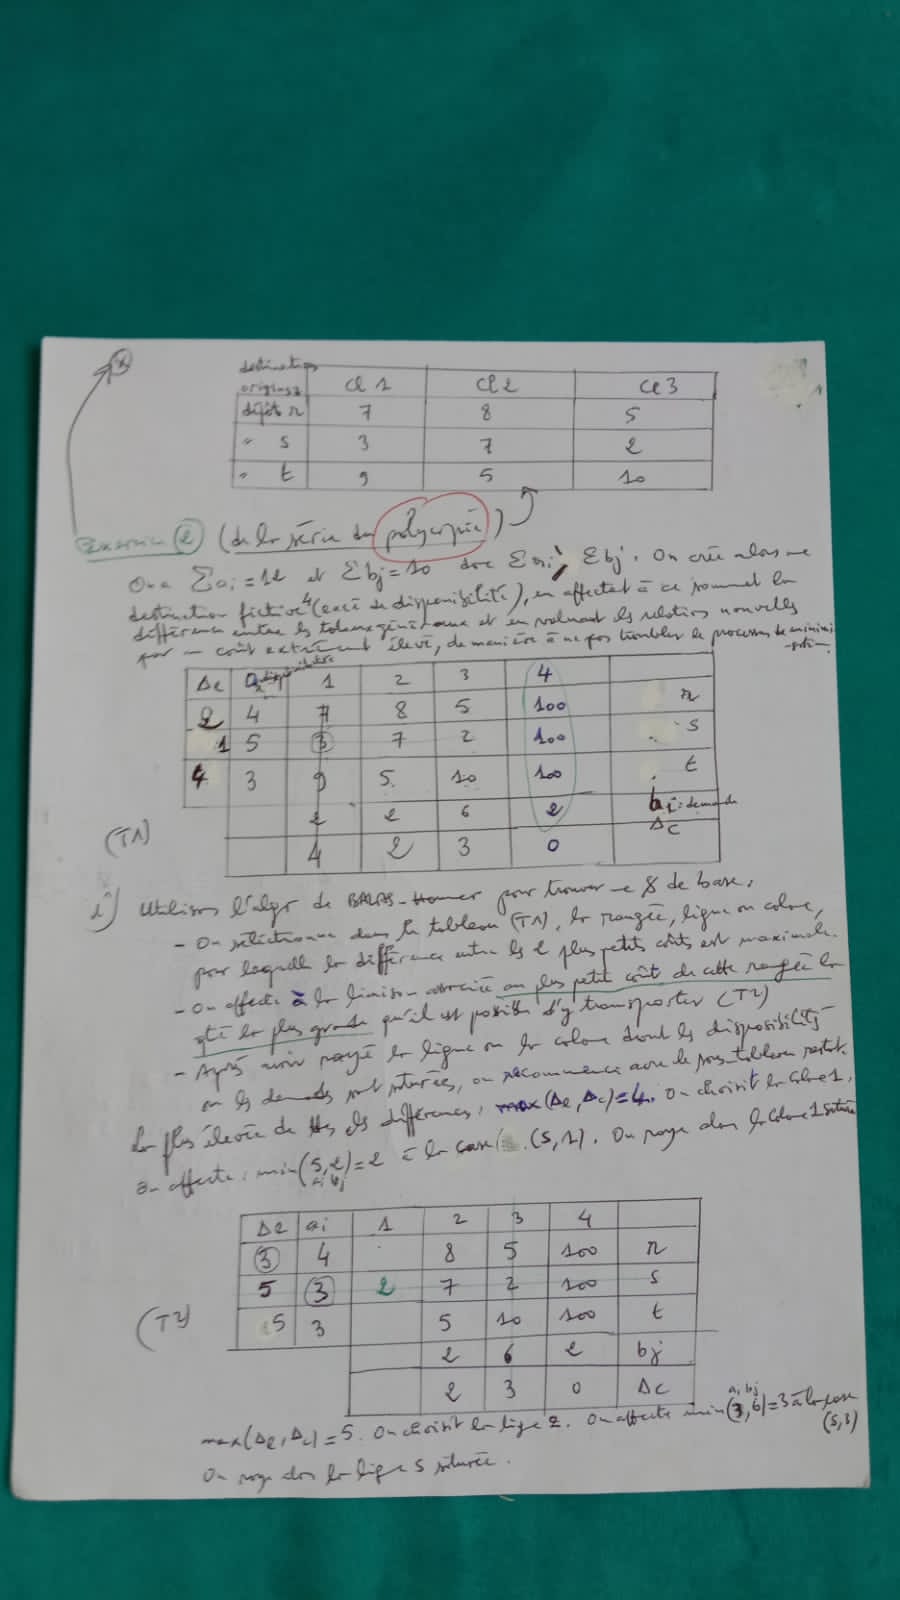 destinations
origines cl 1 cl 2 cl 3
dépôt r 7 8 5
" s 3 7 2
" t 9 5 10
Exercice 2 (de la série du polycopié)
On a Σai = 12 et Σbj = 10 donc Σai > Σbj. On crée alors une
destination fictive 4 (excé de disponibilité), en affectant à ce sommet la
différence entre les totaux généraux et en valuant les relations nouvelles
par un coût extrêment élevé, de manière à ne pas troubler le processus de minimi
-sation.
Δl ai disponibilités 1 2 3 4
2 4 7 8 5 100 r
1 5 3 7 2 100 s
4 3 9 5 10 100 t
2 2 6 2 bj : demande
4 2 3 0 Δc
(T1)
1°) Utilisons l'algr de BALAS-Hammer pour trouver une S de base.
- On sélectionne dans le tableau (T1), la rangée, ligne ou colone,
pour laquelle la différence entre les 2 plus petits coûts est maximale.
- On affecte à la liaison associée au plus petit coût de cette rangée la
qté la plus grande qu'il est possible d'y transporter (T2)
- Après avoir rayé la ligne ou la colone dont les disposibilités
ou les demandes sont saturées, on recommence avec le sous-tableau restant.
La plus élevée de ttes les différences, max(Δl, Δc) = 4. On choisit la colone 1,
On affecte : min(5, 2) = 2 à la case (s, 1). On raye donc la colone 1 saturée
ai bj
Δl ai 1 2 3 4
3 4 8 5 100 r
5 3 2 7 2 100 s
5 3 5 10 100 t
2 6 2 bj
2 3 0 Δc
(T2)
ai bj
max(Δl, Δc) = 5. On choisit la ligne 2. On affecte min(3, 6) = 3 à la case
(s, 3)
On raye donc la ligne s saturée.